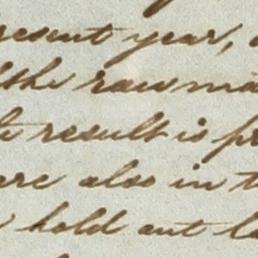 resent year,
the raw ma
result is pr
are also in t
hold out